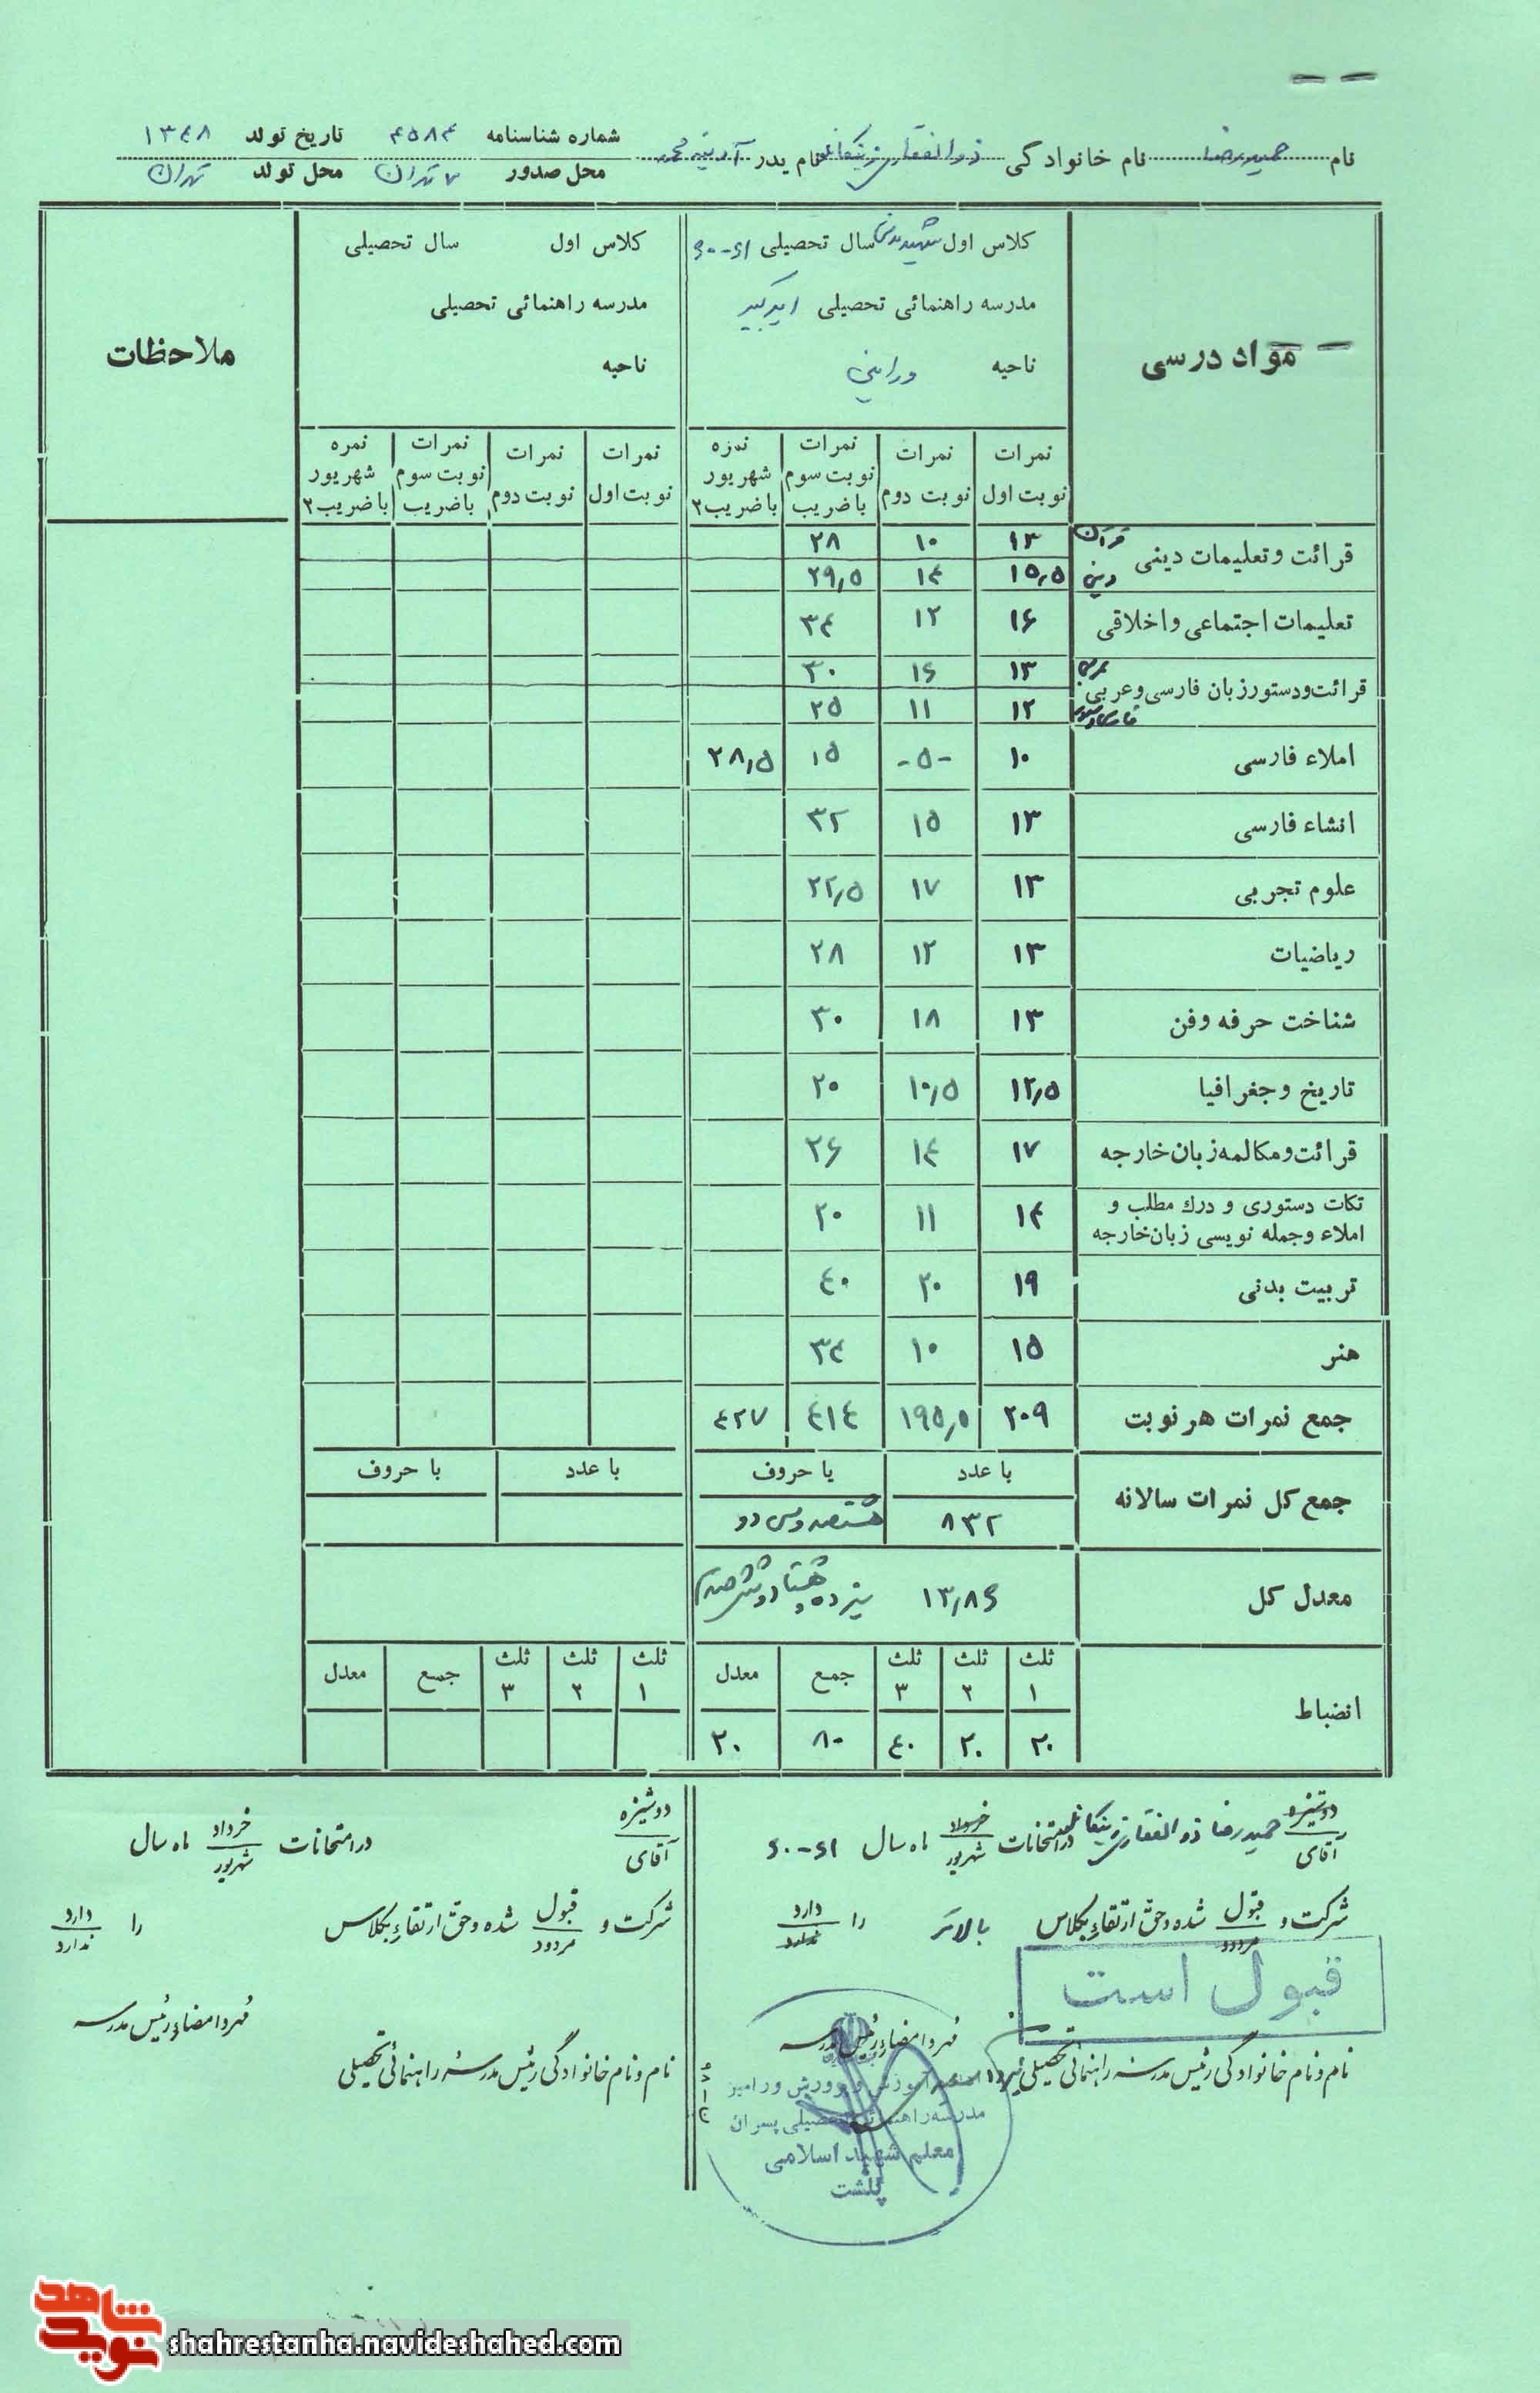 نام حمیدرضا نام خانوادگی ذوالفقاری نام پدر شماره شناسنامه ۴۵۸۴ تاریخ تولد ۱۳۴۸
محل صدور تهران محل تولد تهران
مواد درسی
کلاس اول سال تحصیلی ۶۱-۶۰
مدرسه راهنمائی تحصیلی امیرکبیر
ناحیه ورامین
کلاس اول سال تحصیلی
مدرسه راهنمائی تحصیلی
ناحیه
ملاحظات
نمرات نوبت اول نمرات نوبت دوم نمرات نوبت سوم باضریب نمره شهریور باضریب۲ نمرات نوبت اول نمرات نوبت دوم نمرات نوبت سوم باضریب نمره شهریور باضریب۲
قرائت وتعلیمات دینی قرآن ۱۳ ۱۰ ۲۸
دینی ۱۵٫۵ ۱۴ ۲۹٫۵
تعلیمات اجتماعی واخلاقی ۱۶ ۱۲ ۳۴
قرائت ودستورزبان فارسی وعربی عربی ۱۳ ۱۶ ۳۰
فارسی و دستور ۱۲ ۱۱ ۲۵
املاء فارسی ۱۰ -۵- ۱۵ ۲۸٫۵
انشاء فارسی ۱۳ ۱۵ ۳۲
علوم تجربی ۱۳ ۱۷ ۲۲٫۵
ریاضیات ۱۳ ۱۲ ۲۸
شناخت حرفه وفن ۱۳ ۱۸ ۳۰
تاریخ وجغرافیا ۱۲٫۵ ۱۰٫۵ ۲۰
قرائت ومکالمه زبان خارجه ۱۷ ۱۴ ۲۶
نکات دستوری و درك مطلب و
املاء وجمله نویسی زبان خارجه ۱۴ ۱۱ ۲۰
تربیت بدنی ۱۹ ۲۰ ۴۰
هنر ۱۵ ۱۰ ۳۴
جمع نمرات هر نوبت ۲۰۹ ۱۹۵٫۵ ۴۱۴ ۴۲۷
جمع کل نمرات سالانه با عدد با حروف با عدد با حروف
۸۳۲ هشتصد و سی و دو
معدل کل ۱۳٫۸۶ سیزده و هشتاد و شش صدم
انضباط ثلث ۱ ثلث ۲ ثلث ۳ جمع معدل ثلث ۱ ثلث ۲ ثلث ۳ جمع معدل
۲۰ ۲۰ ۴۰ ۸۰ ۲۰
دوشیزه آقای حمیدرضا ذوالفقاری در امتحانات خرداد شهریور ماه سال ۶۱-۶۰
شرکت و قبول مردود شده وحق ارتقاء بکلاس بالاتر را دارد ندارد
قبول است
مهر و امضاء رئیس مدرسه
نام و نام خانوادگی رئیس مدرسه راهنمائی تحصیلی
آموزش و پرورش ورامین
مدرسه راهنمائی تحصیلی پسران
معلم شهید اسلامی
پلشت
دوشیزه آقای در امتحانات خرداد شهریور ماه سال
شرکت و قبول مردود شده وحق ارتقاء بکلاس را دارد ندارد
مهر و امضاء رئیس مدرسه
نام و نام خانوادگی رئیس مدرسه راهنمائی تحصیلی
نوید شاهد
shahrestanha.navideshahed.com